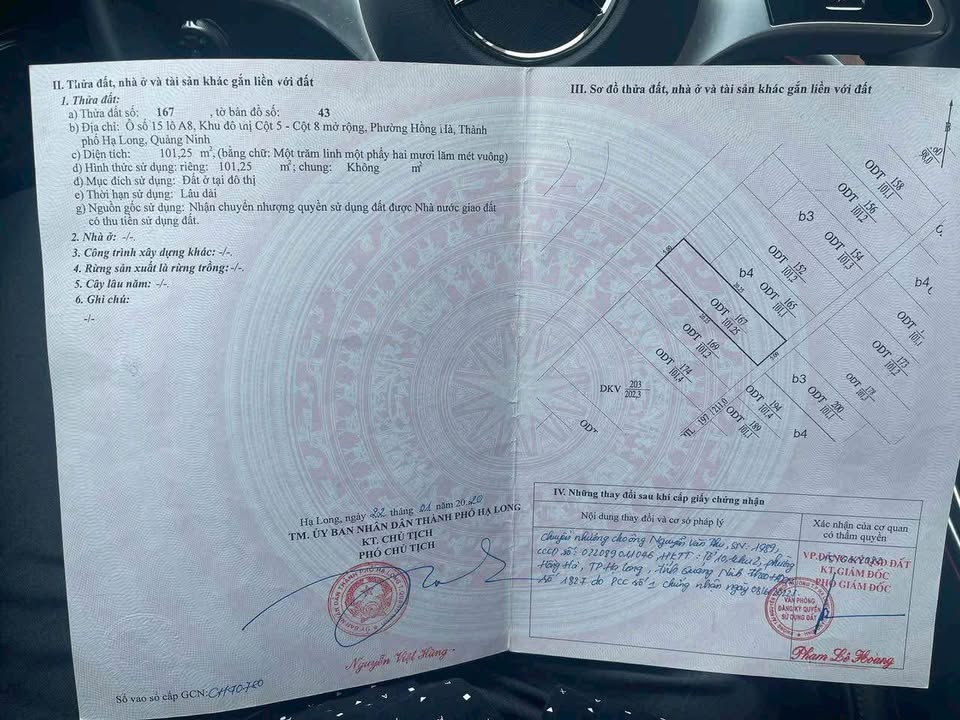 II. Thửa đất, nhà ở và tài sản khác gắn liền với đất
1. Thửa đất:
a) Thửa đất số: 167 , tờ bản đồ số: 43
b) Địa chỉ: Ô số 15 lô A8, Khu đô thị Cột 5 - Cột 8 mở rộng, Phường Hồng Hà, Thành
phố Hạ Long, Quảng Ninh
c) Diện tích: 101,25 m², (bằng chữ: Một trăm linh một phẩy hai mươi lăm mét vuông)
d) Hình thức sử dụng: riêng: 101,25 m²; chung: Không m²
đ) Mục đích sử dụng: Đất ở tại đô thị
e) Thời hạn sử dụng: Lâu dài
g) Nguồn gốc sử dụng: Nhận chuyển nhượng quyền sử dụng đất được Nhà nước giao đất
có thu tiền sử dụng đất.
2. Nhà ở: -/-.
3. Công trình xây dựng khác: -/-.
4. Rừng sản xuất là rừng trồng:-/-.
5. Cây lâu năm: -/-.
6. Ghi chú:
-/-
Hạ Long, ngày 22 tháng 01 năm 2020
TM. ỦY BAN NHÂN DÂN THÀNH PHỐ HẠ LONG
KT. CHỦ TỊCH
PHÓ CHỦ TỊCH
Nguyễn Việt Hùng
Số vào sổ cấp GCN: CH40760
III. Sơ đồ thửa đất, nhà ở và tài sản khác gắn liền với đất
B
ODT 158 101,1
ODT 156 101,2
b3
ODT 154 101,3
ODT 152 101,2
b4
ODT 165 101,1
5.00
20.25
ODT 167 101,25
20.25
5.00
ODT 169 101,2
ODT 174 101,4
DKV 203 202,3
ODT
b4
ODT
101,1
ODT 173 101,2
ODT
b3
ODT 200 101,1
ODT 194 107,4
ODT 189 101,1
197 211.0
b4
IV. Những thay đổi sau khi cấp giấy chứng nhận
Nội dung thay đổi và cơ sở pháp lý
Xác nhận của cơ quan
có thẩm quyền
Chuyển nhượng cho ông Nguyễn Văn Thu, SN: 1989,
CCCD số: 022089011046, HKTT: Tổ 10, khu 2, phường
Hồng Hà, TP Hạ Long, Tỉnh Quảng Ninh theo
số 1827 do PCC số 1 chứng nhận ngày
VP.ĐĂNG KÝ QSD ĐẤT
KT.GIÁM ĐỐC
PHÓ GIÁM ĐỐC
VĂN PHÒNG
ĐĂNG KÝ QUYỀN
SỬ DỤNG ĐẤT
Phạm Lê Hoàng